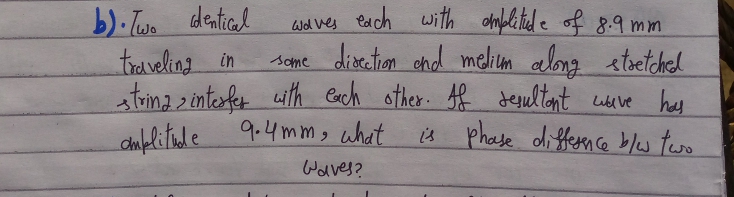 b). Two identical waves each with amplitude of 8.9 mm
traveling in same direction and medium along stretched
string, interfer with each other. If resultant wave has
amplitude 9.4mm, what is phase difference b/w two
waves?